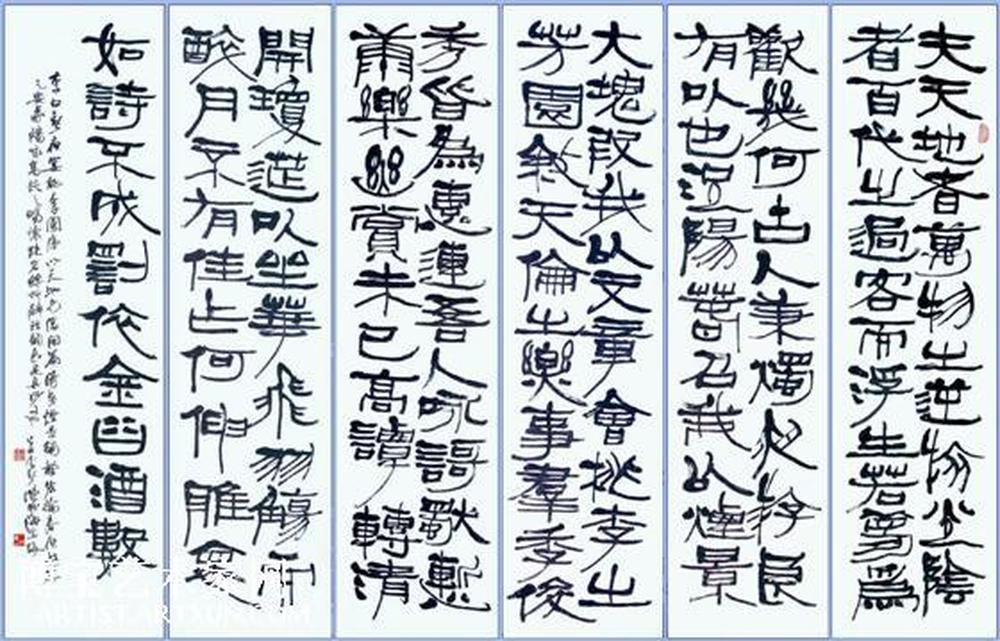 夫天地者萬物之逆旅光陰
者百代之過客而浮生若夢為
歡幾何古人秉燭夜遊良
有以也況陽春召我以煙景
大塊假我以文章會桃李之
芳園敘天倫之樂事羣季俊
秀皆為惠連吾人詠謌獨慚
康樂幽賞未已高譚轉清
開瓊筵以坐華飛羽觴而
醉月不有佳作何伸雅懷
如詩不成罰依金谷酒數
李白春夜宴桃李園序
博宝艺术家网
ARTIST.ARTXUN.COM